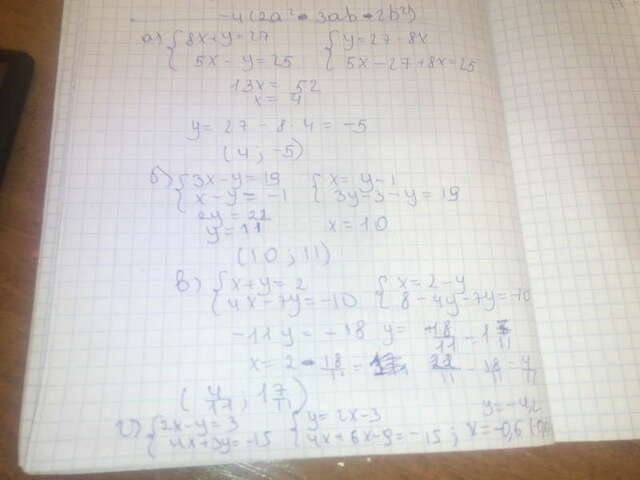 -4(2a² - 3ab - 2b²)
а) { 8x + y = 27 { y = 27 - 8x
5x - y = 25 5x - 27 + 8x = 25
13x = 52
x = 4
y = 27 - 8 · 4 = -5
(4 ; -5)
б) { 3x - y = 19 { x = y - 1
x - y = -1 3y = 3 - y = 19
2y = 22
y = 11 x = 10
(10 ; 11)
в) { x + y = 2 { x = 2 - y
4x - 7y = -10 8 - 4y - 7y = -10
-11y = -18 y = 18/11 = 1 7/11
x = 2 - 18/11 = 22/11 - 18/11 = 4/11
(4/11 ; 1 7/11)
г) { 2x - y = 3 { y = 2x - 3 y = -4,2
4x + 3y = -15 4x + 6x - 9 = -15 ; x = -0,6